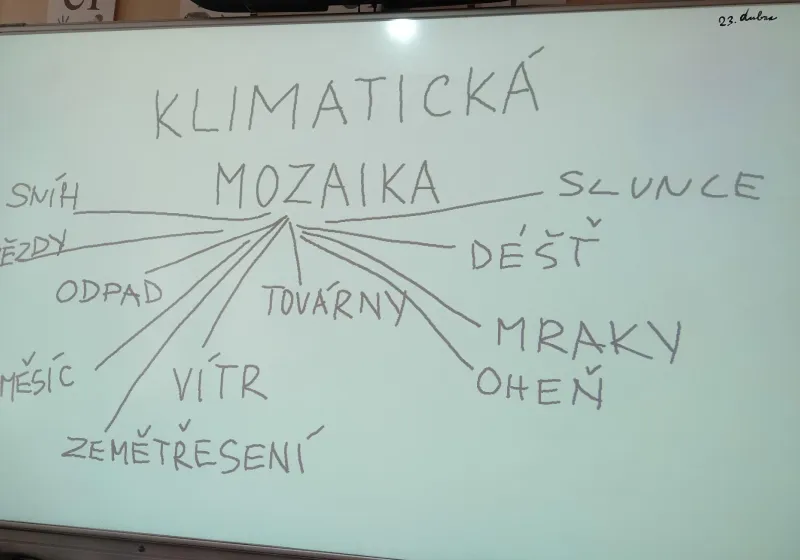 23. dubna
KLIMATICKÁ
MOZAIKA
SNÍH
SLUNCE
ĚZDY
DÉŠŤ
ODPAD
TOVÁRNY
MRAKY
MĚSÍC
VÍTR
OHEŇ
ZEMĚTŘESENÍ